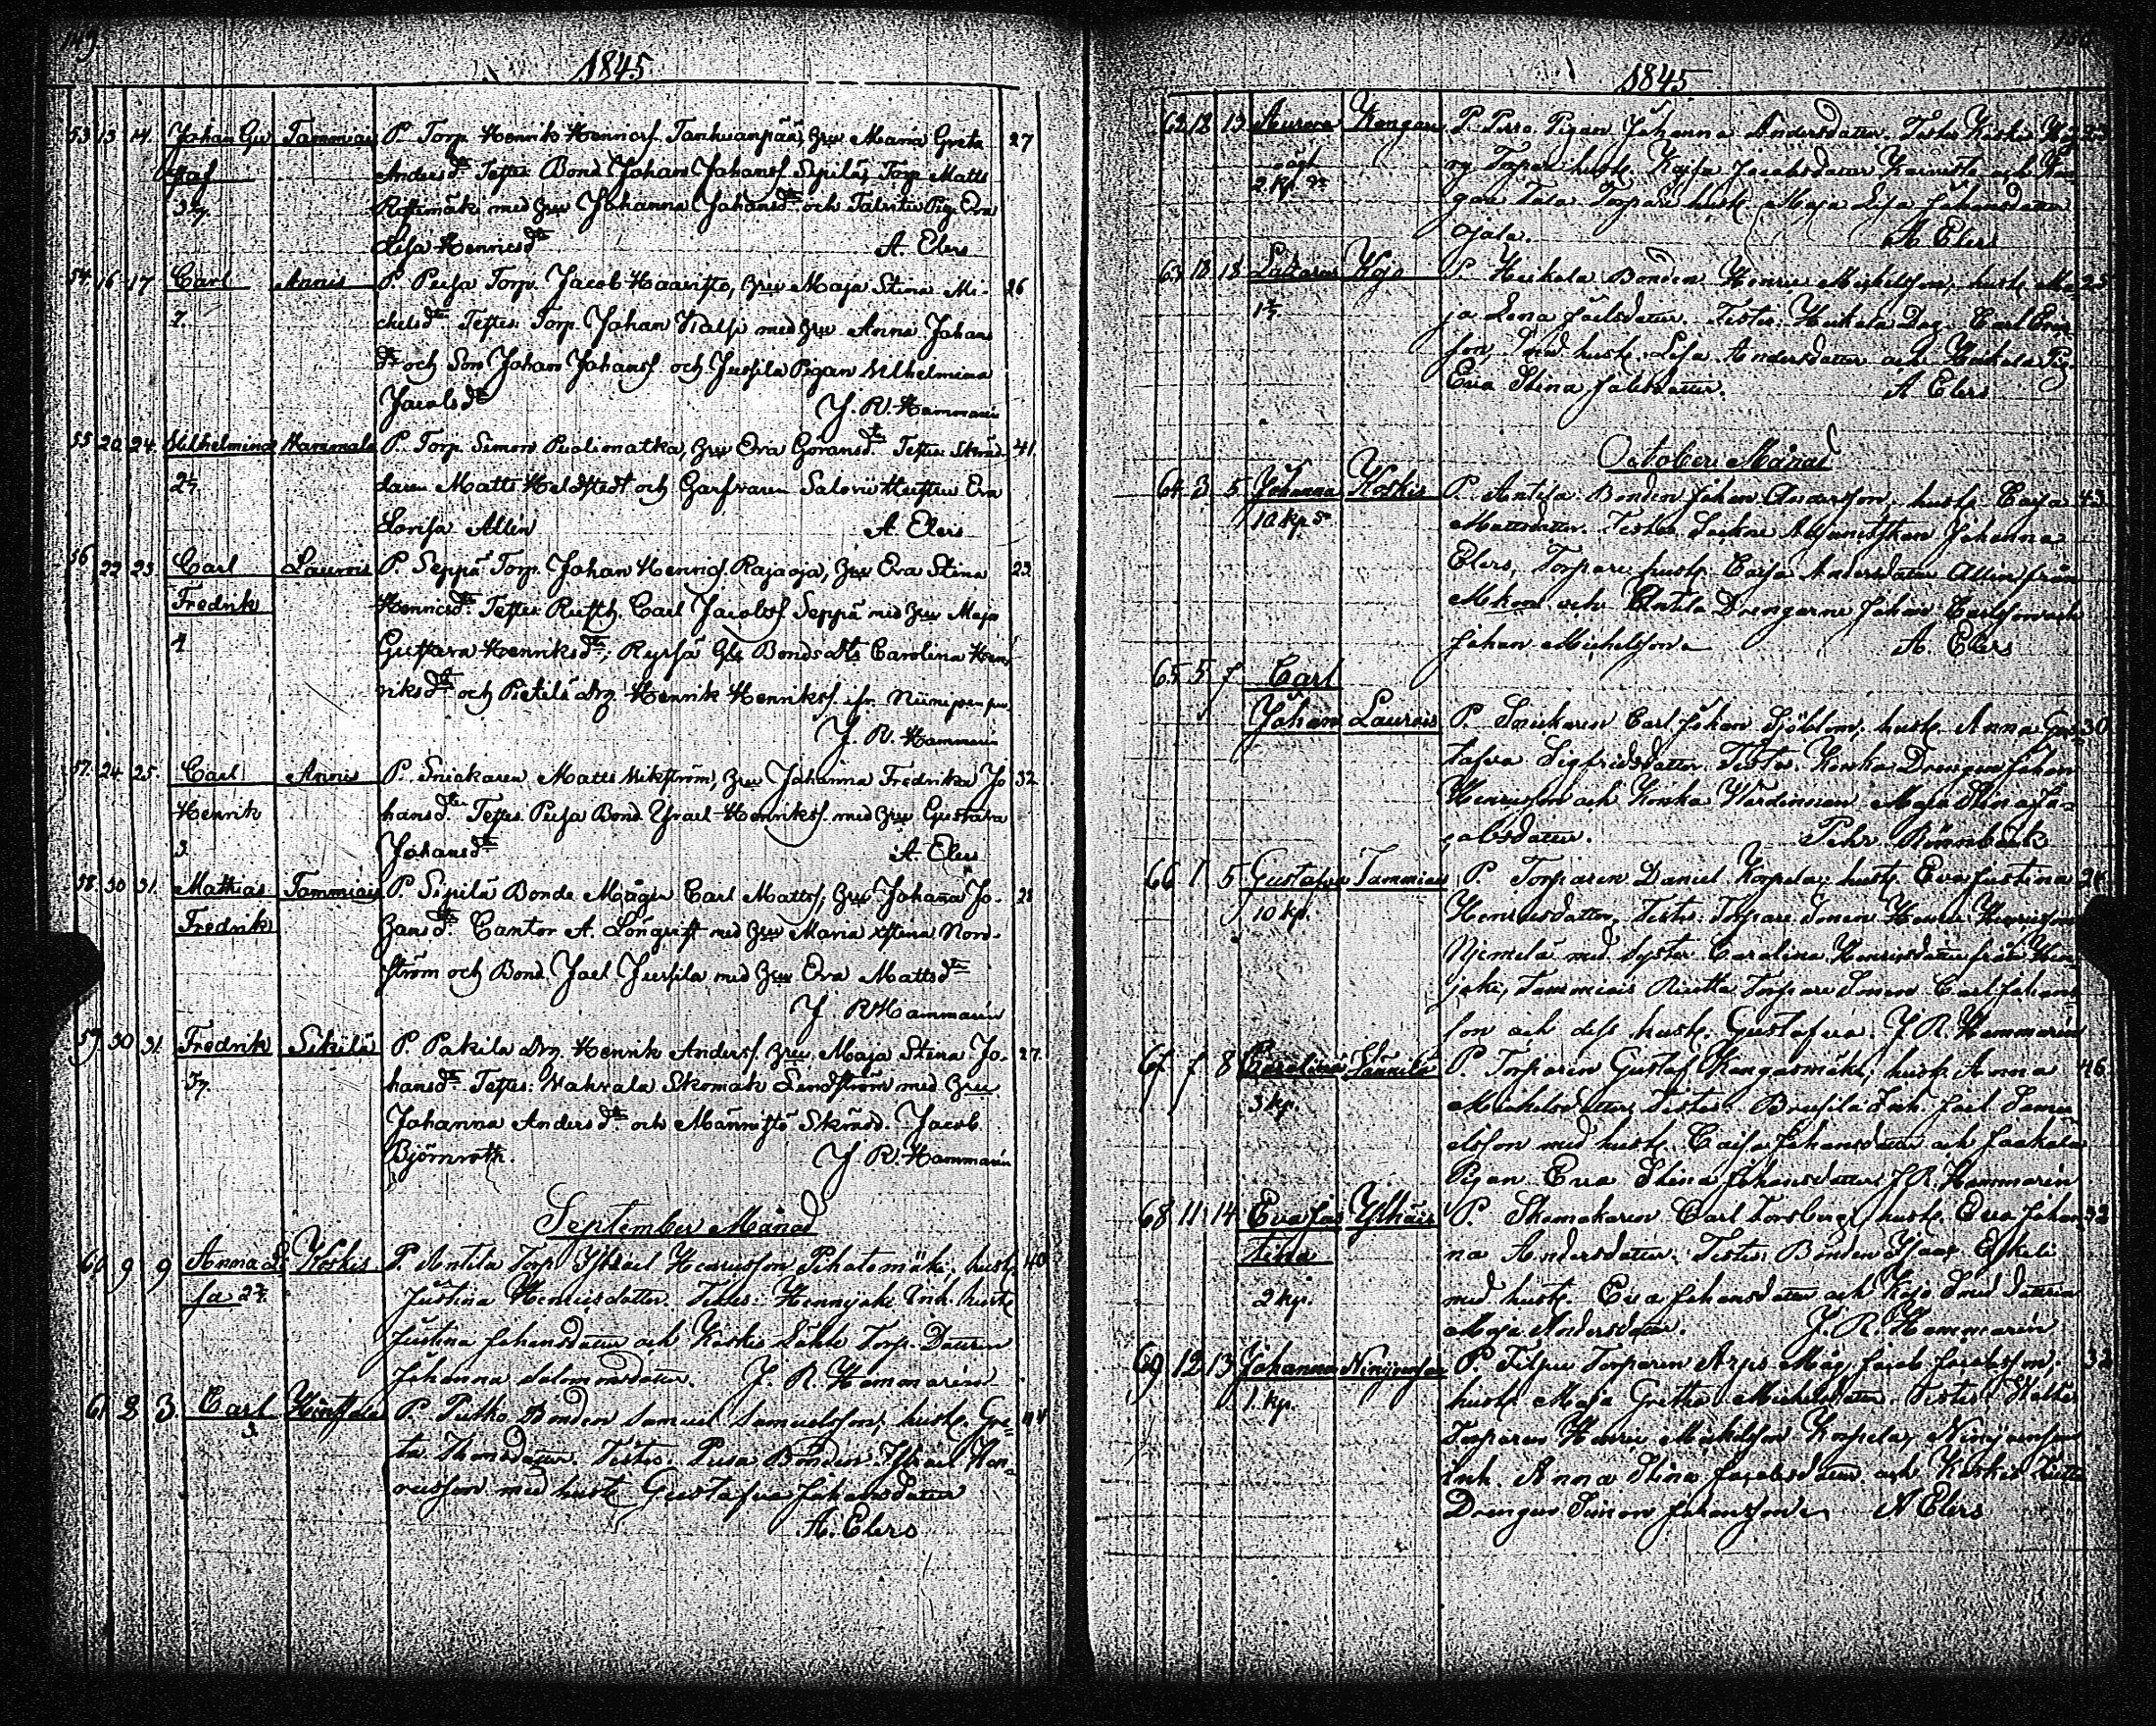 149
1845
53 13 14 Johan Gu Tammiais P. Torp. Henrik Henricss. Tanhuanpää, hru Maria Greta 27
staf Andersdtr Testes: Bond. Johan Johanss. Sipilä, Torp. Matts
3 kp. med hru Johanna Johansdtr och Talvitie Pig. Eva
Lisa Henricsdtr A. Elers
54 16 17 Carl Annis P. Peisa Torp. Jacob Haavisto, hru Maja Stina Mi- 26
7. chelsdtr Testes: Torp. Johan med hru Anna Johans
dtr och Son Johan Johanss. och Jussila Pigan Wilhelmina
Jacobsdtr J. R. Hammarin
55 20 24 Wilhelmina P. Torp. Simon hru Eva Göransdtr Testes: Skräd- 41.
2 daren Matts Heldstedt och Garfvaren Hustru Eva
Lovisa Allén A. Elers
56 22 23 Carl Laurois P. Seppä Torp. Johan Henrics. Rajaoja, hru Eva Stina 23.
Fredrik Henricsdtr. Testes: Rusth. Carl Jacobss. Seppä med hru Maja
4 Gustava Henriksdtr, Bonds Dtr Carolina Hen
riksdtr och Pietilä drg Henrik Henrikss. ifr. Niinijoensuu
J. R. Hammarin
57. 24 25. Carl Annis P. Snickaren Matts Wikström, hru Johanna Fredrika Jo 32
Henrik hansdtr. Testes: Peisa Bond. Israel Henrikss. med hru Gustava
3 Johansdtr A. Elers
58. 30 31. Mathias Tammiais P. Sipilä Bonde Mågen Carl Mattss, hru Johanna Jo- 28
Fredrik hansdtr. Cantor A. Lönqvist med hru Maria Stina Nord-
ström och Bond. Joel Jussila med hru Eva Mattsdtr
J. R Hammarin
59 30 31. Fredrik Sikilä P. Pakila drg Henrik Anderss. hru Maja Stina Jo- 27.
hansdtr. Testes: Skomak Lindström med hru
Johanna Andersdtr och Männistö Skrädd. Jacob
Björnroth. J R. Hammarin
September Månad
60 9 9 Anna Li Koskis P. Antila Torp. Israel Henricsson Pihatomäki, hust. 40
sa Justina Henricsdotter. Testes: Hennijoki Inh. hust
Justina Johansdotter och Koskis Torp. Dottern
Johanna Salomonsdotter. J. R. Hammarin
61 2 3. Carl P. Putko Bonden Samuel Samuelsson, hust. Gre- 44
3. ta Thomsdotter. Testes: Peisa Bonden Israel Hen-
ricsson med hust Gustafva Johansdotter
A. Elers
1845
62 12 13 Aurora Kongari P. Pirro Pigan Johanna Andersdotter. Testes Koskis
oächt
2 kp. Torpare hust. Kajsa Jacobsdotter och Kon-
gari Tala Torpare hust. Maja Lisa Johansdotter
Ojala. A Elers
63 18 18 Lazarus Kojo P. Heikola Bonden Henric Michelsson, hust. Ma- 25
ja Lena Joelsdotter. Testes: Heikola Drg. Carl Eric-
son med hust. Lisa Andersdotter och Heikola Pig.
Eva Stina Joelsdotter. A Elers
October Månad
64 3 5. Johanna Koskis P. Antila Bonden Johan Andersson, hust. Cajsa 43
10 kp. Mattsdotter. Testes: Johanna
Elers, Torpare hust. Cajsa Andersdotter Allin från
och Antila Drengarne Johan Carlsson och
Johan Michelsson. A. Elers
65 5 7 Carl
Johan Laurois P. Snickaren Carl Johan Sjöblom, hust. Anna Gus- 30
tafva Sigfridsdotter. Testes: Konka Drengen Johan
Henricsson och Konka Wärdinnan Maja Stina Ja-
cobsdotter. Pehr Rönnbäck
66 1 5 Gustafva Tammiais P. Torparen Daniel Korpela, hust. Eva Justina
10 kp. Henricsdotter. Testes: Torpare Sonen Henric Henricsson
med Syster Carolina Henricsdotter från Hen-
joki, Tammiais Torpare Sonen Carl Johans-
son och dess hust. Gustafva. J R. Hammarin
67 7 8 Carolina P. Torparen Gustaf Kangasmäki, hust. Anna 46
3 kp. Michelsdotter Testes: Inh. Joel Samu-
elsson med hust. Cajsa Johansdotter och Jaakola
Pigan Eva Stina Johansdotter J. R. Hammarin
68 11 14 Eva Jus Ylhäis P. Skomakaren Carl Forsberg, hust. Eva Johan- 32
tina na Andersdotter. Testes: Bonden Isaac Eskeli
2 kp. med hust. Eva Johansdotter och Kojo Smed dottern
Maja Andersdotter. J. R. Hammarin
69 12 13 Johanna Ninijoensuu P. Torparen Arpis Måg Jacob Jacobsson, 32
1. kp. hust. Maja Gretha Michelsdotter. Testes:
Torparen Henric Michelsson Korpela, Ninijoensuu
Inh. Anna Stina Jacobsdotter och Koskis
Drengen Simon Johansson. A Elers